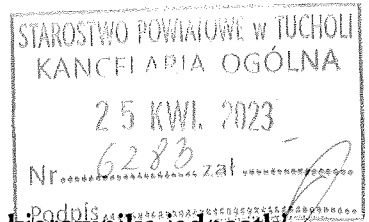 STAROSTWO POWIATOWE w TUCHOLI
KANCELARIA OGÓLNA
25 KWI. 2023
Nr 6283 zał
Podpis